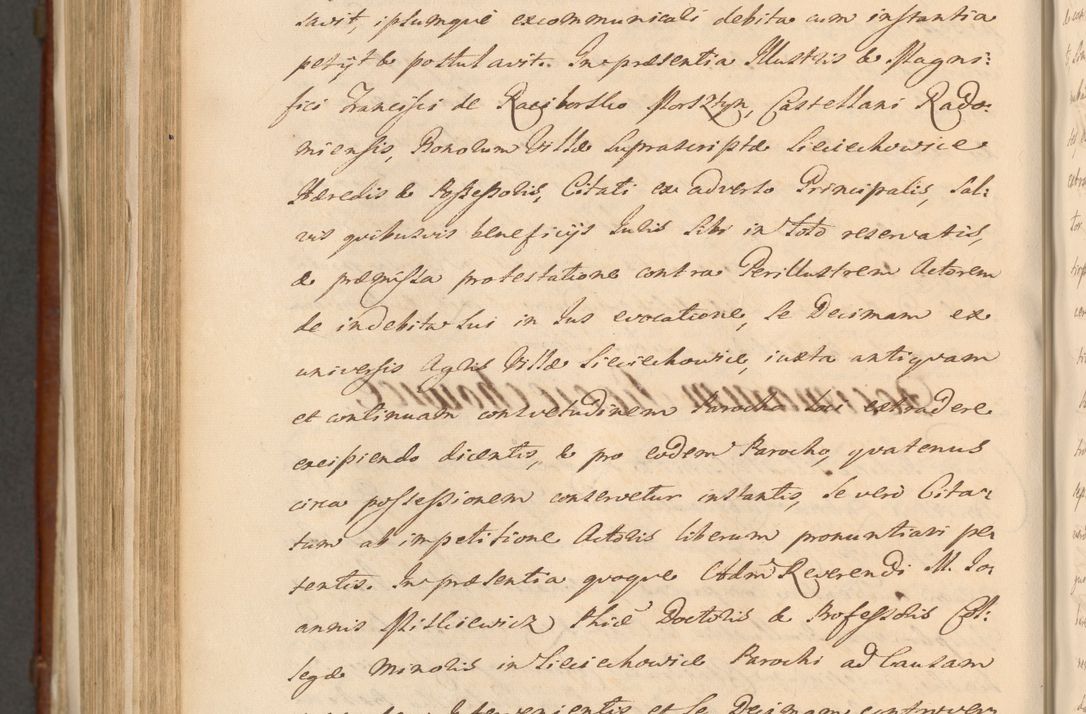 savit, ipsumquè excommunicali debita cum instantia
petijt & postulavit. In præsentia Illustris & Magni:
fici Francisci de Raciborsko Morsztyn, Castellani Rado:
miensis, Bonorum Villæ suprascriptæ Sieciechowice
Hæredis & Possessoris, Citati ex adverso Principalis, Sal:
vis quibusvis beneficijs Iuris sibi in toto reservatis,
& præmissa protestatione contra Perillustrem Actorem
de indebita sui in Ius evocatione, se Decimam ex
universis Agris Villæ Sieciechowice, iuxta antiquam
et continuam consvetudinem Parocho loci extradere
excipiendo dicentis, & pro eodem Parocho, quatenus
circa possessionem conservetur instantis, se verò Cita:
tum ab impetitione Actoris liberum pronuntiari pe:
tentis. In præsentia quoque Adm Reverendi M. Io:
annis Philosophiæ Doctoris & Professoris Col:
legæ Minoris in Sieciechowice Parochi ad Causam
Intervenientis et se Decimam